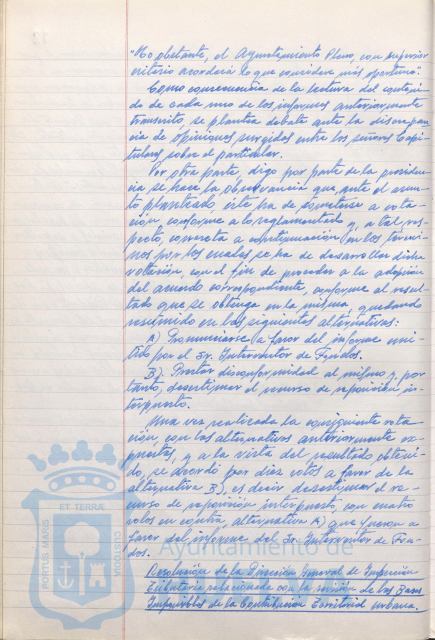 "No obstante, el Ayuntamiento Pleno, con superior
criterio acordará lo que considere más oportuno".
Como consecuencia de la lectura del conteni-
do de cada uno de los informes anteriormente
transcrito, se plantea debate ante la discrepan-
cia de opiniones surgidas entre los señores Capi-
tulares sobre el particular.
Por otra parte, digo por parte de la presiden-
cia se hace la observancia que, ante el asun-
to planteado éste ha de someterse a vota-
ción conforme a lo reglamentado y, a tal res-
pecto, concreta a continuación en los térmi-
nos por los cuales se ha de desarrollar dicha
votación, con el fin de proceder a la adopción
del acuerdo correspondiente, conforme al resul-
tado que se obtenga en la misma, quedando
resumido en las siguientes alternativas:
A) Pronunciarse a favor del informe emi-
tido por el Sr. Interventor de Fondos.
B) Prestar disconformidad al mismo y, por
tanto, desestimar el recurso de reposición in-
terpuesto.
Una vez realizada la consiguiente vota-
ción, con las alternativas anteriormente ex-
puestas, y a la vista del resultado obteni-
do, se acordó por diez votos a favor de la
alternativa B), es decir desestimar el re-
curso de reposición interpuesto, con cuatro
votos en contra, alternativa A) que fueron a
favor del informe del Sr. Interventor de Fon-
dos.
Resolución de la Dirección General de Inspección
Tributaria relacionada con la revisión de las Bases
Imponibles de la Contribución Territorial urbana.
Ayuntamiento de
ET TERRÆ
PORTUS MARIS
CUSTODIA